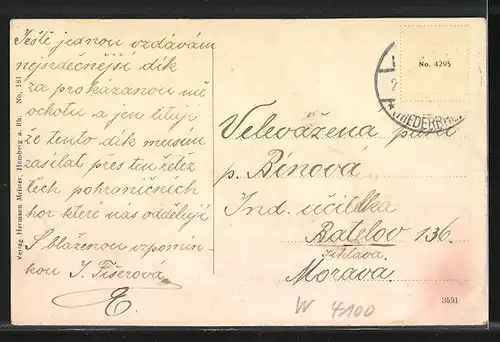 Ještě jednou vzdávám
nejsrdečnější dík
za prokázanou mě
ochotu a jen lituji
že tento dík musím
zasílat přes ten řetez
těch pohraničních
hor které nás oddělují
S blaženou vzpomín-
kou J. Fišerová
E.
Verlag Hermann Meister, Homberg a. Rh. No. 181
No. 4295
Velevážená paní
p. Bínová
Ind. učitelka
Batelov 136.
Jihlava.
Morava.
W 4100
8591